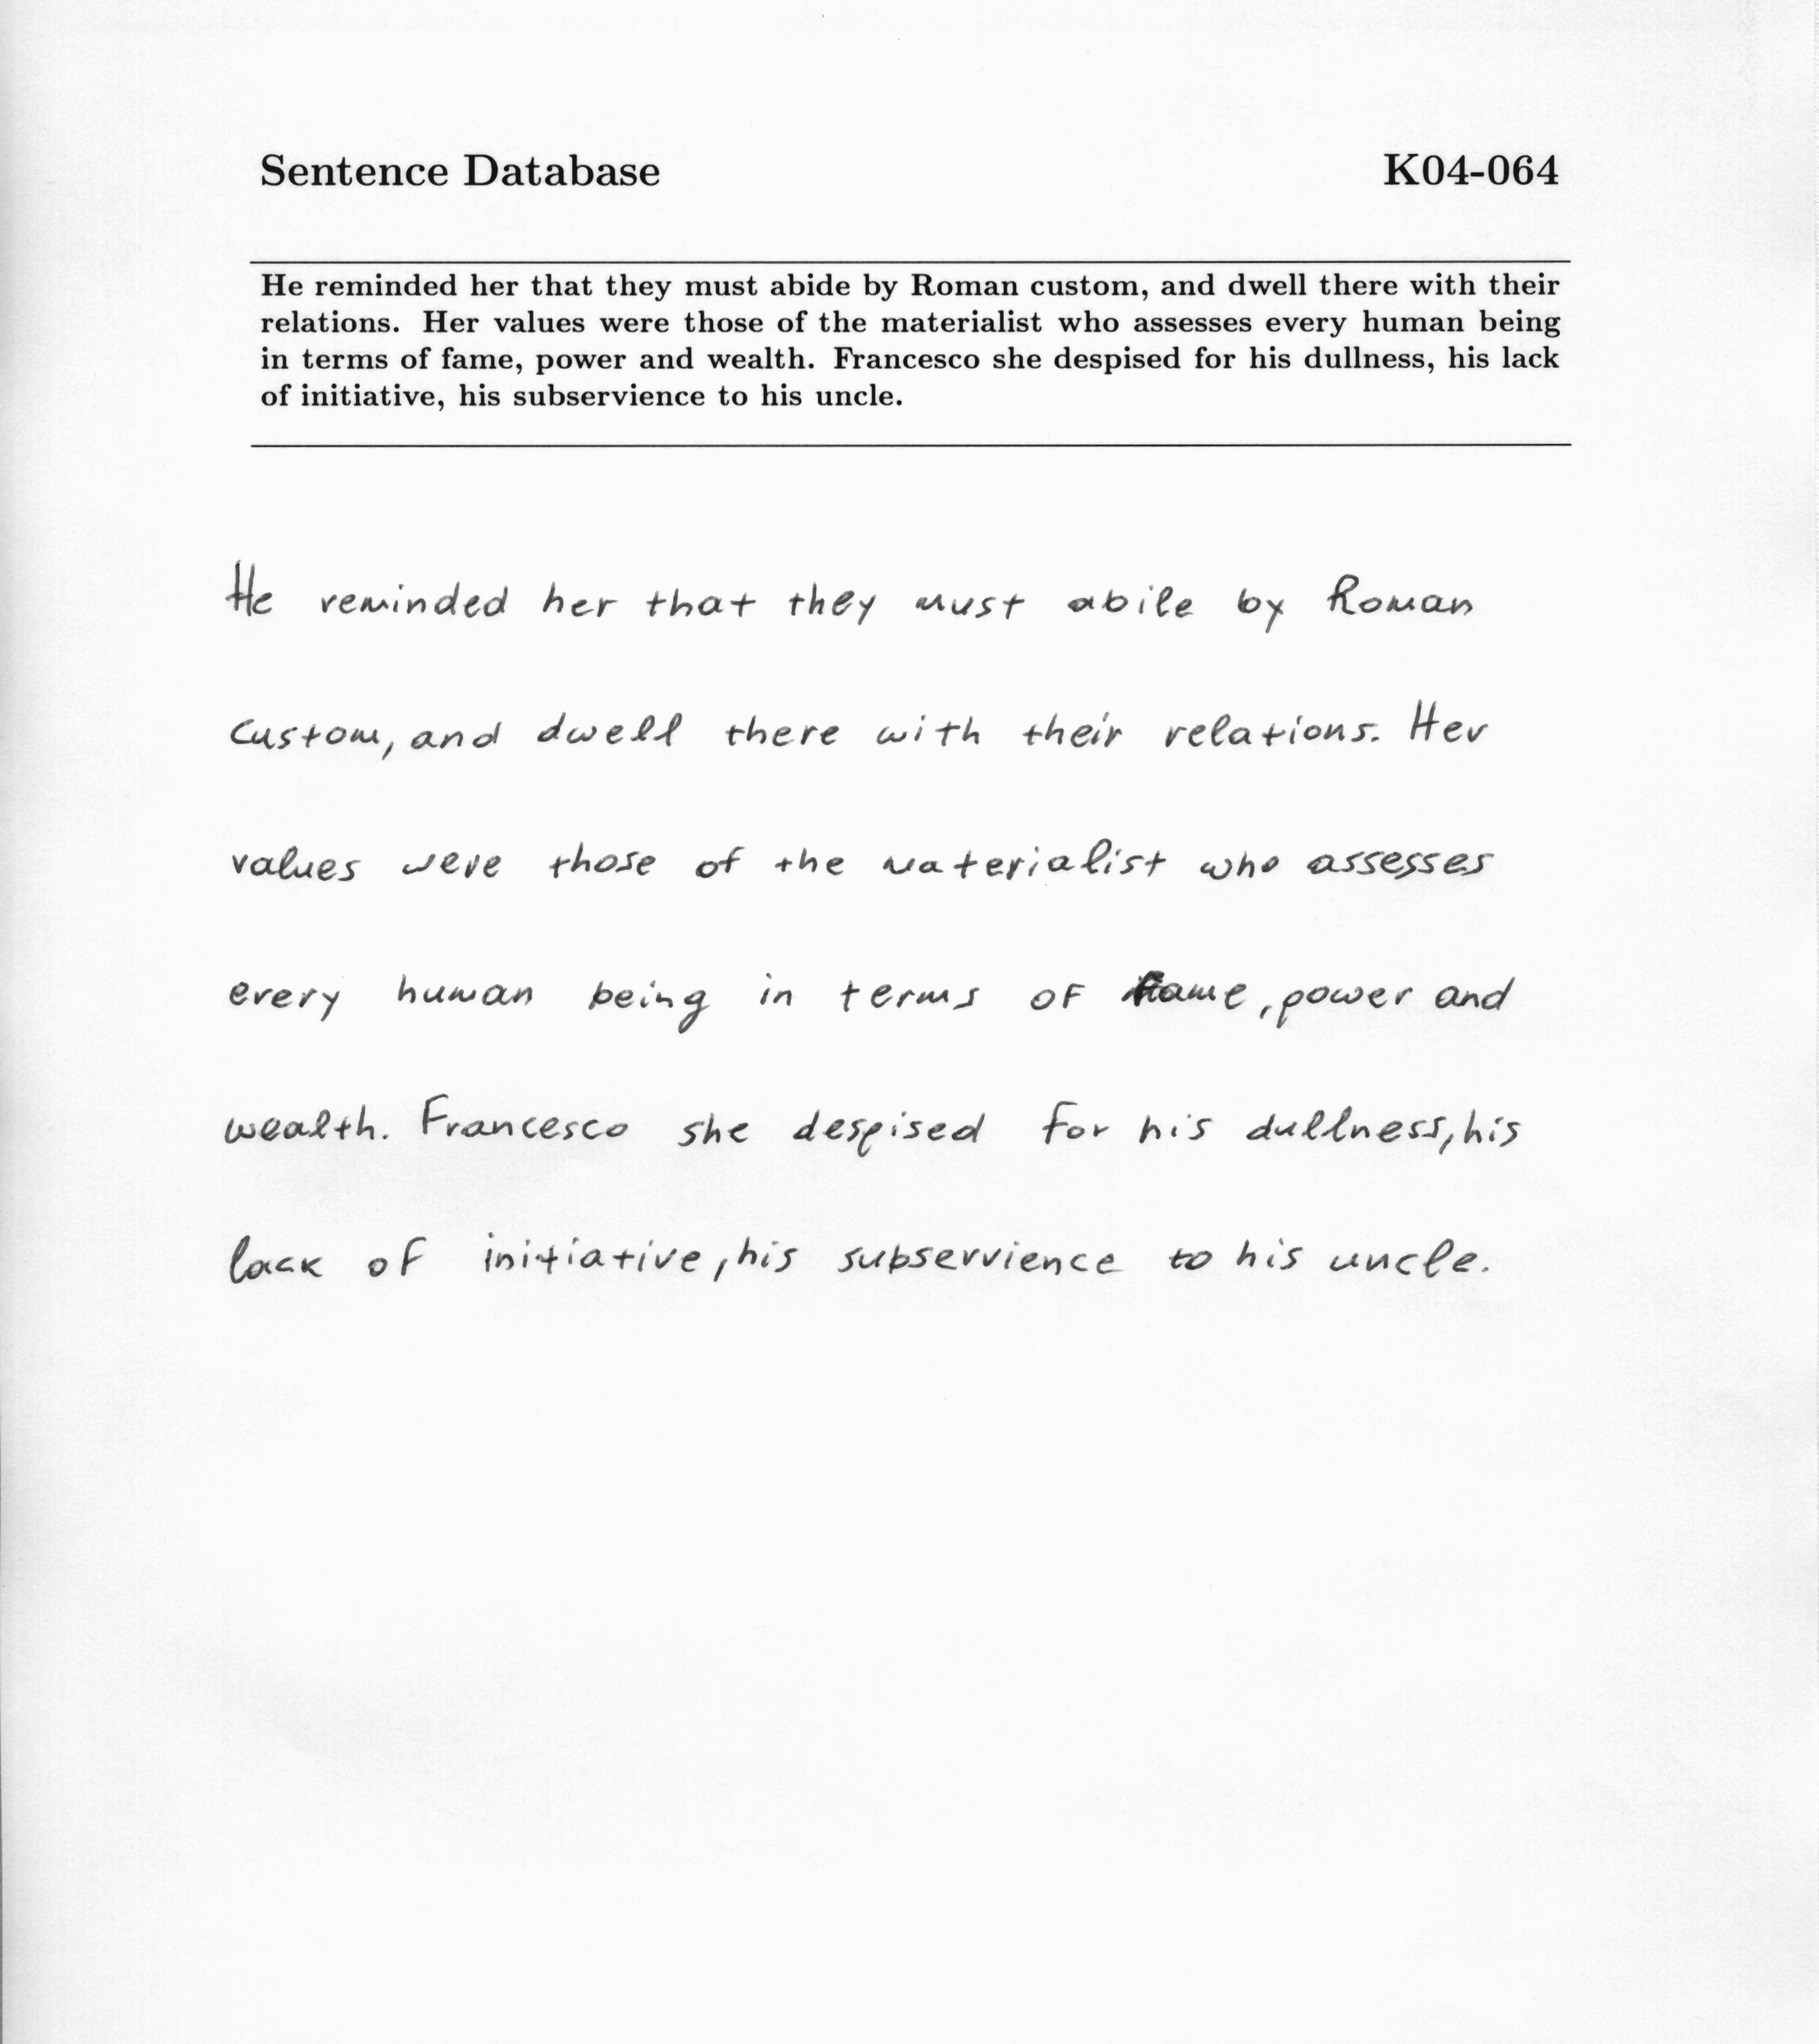 Sentence Database K04-064
He reminded her that they must abide by Roman custom, and dwell there with their
relations. Her values were those of the materialist who assesses every human being
in terms of fame, power and wealth. Francesco she despised for his dullness, his lack
of initiative, his subservience to his uncle.
He reminded her that they must abile by Roman
custom, and dwell there with their relations. Her
values were those of the materialist who assesses
every human being in terms of fame, power and
wealth. Francesco she despised for his dullness, his
lack of initiative, his subservience to his uncle.